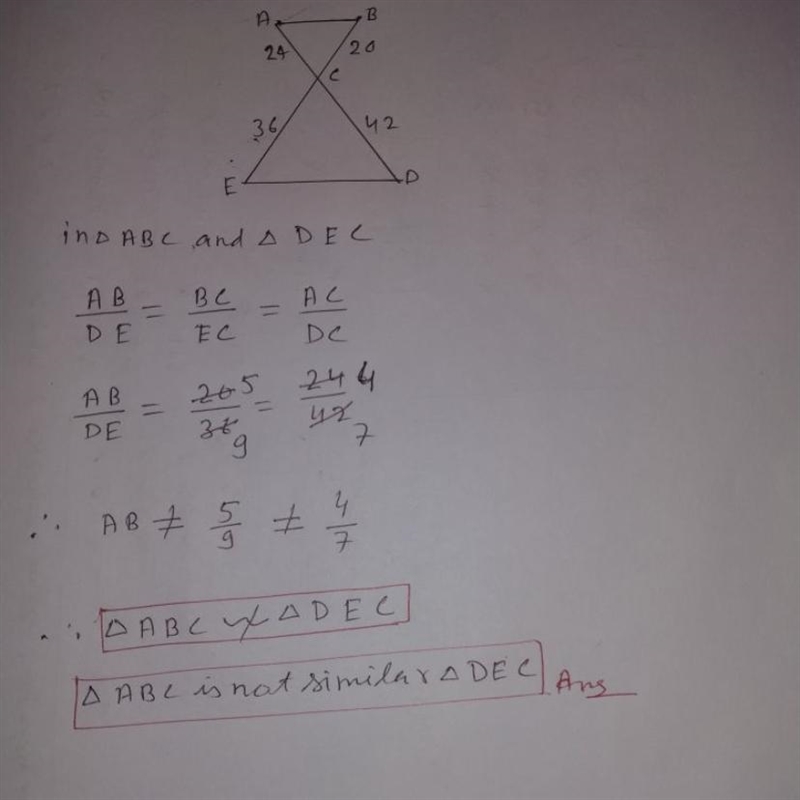 A B
24 20
C
36 42
E D
in △ ABC and △ DEC
AB/DE = BC/EC = AC/DC
AB/DE = 20/36 5/9 = 24/42 4/7
∴ AB ≠ 5/9 ≠ 4/7
∴ △ ABC ≁ △ DEC
△ ABC is not similar △ DEC Ans